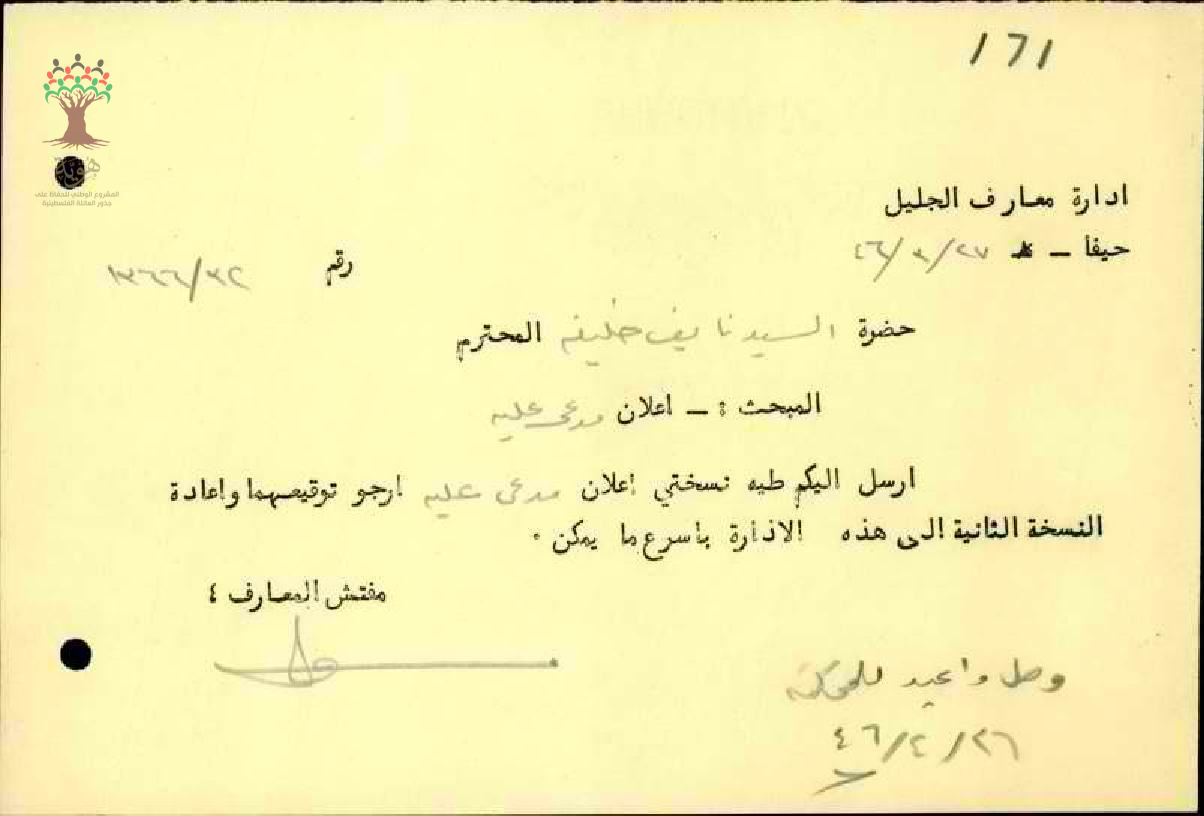 ١٦١
هوية
المشروع الوطني للحفاظ على
جذور العائلة الفلسطينية
ادارة معارف الجليل
حيفا - ٢٧/٣/٤٦
رقم ١٣٦٦/٣٢
حضرة السيد نايف خليفه المحترم
المبحث : - اعلان مدعى عليه
ارسل اليكم طيه نسختي إعلان مدعى عليه ارجو توقيعهما واعادة
النسخة الثانية الى هذه الادارة باسرع ما يمكن .
مفتش المعارف ؛
وصل واعيد للمحكمه